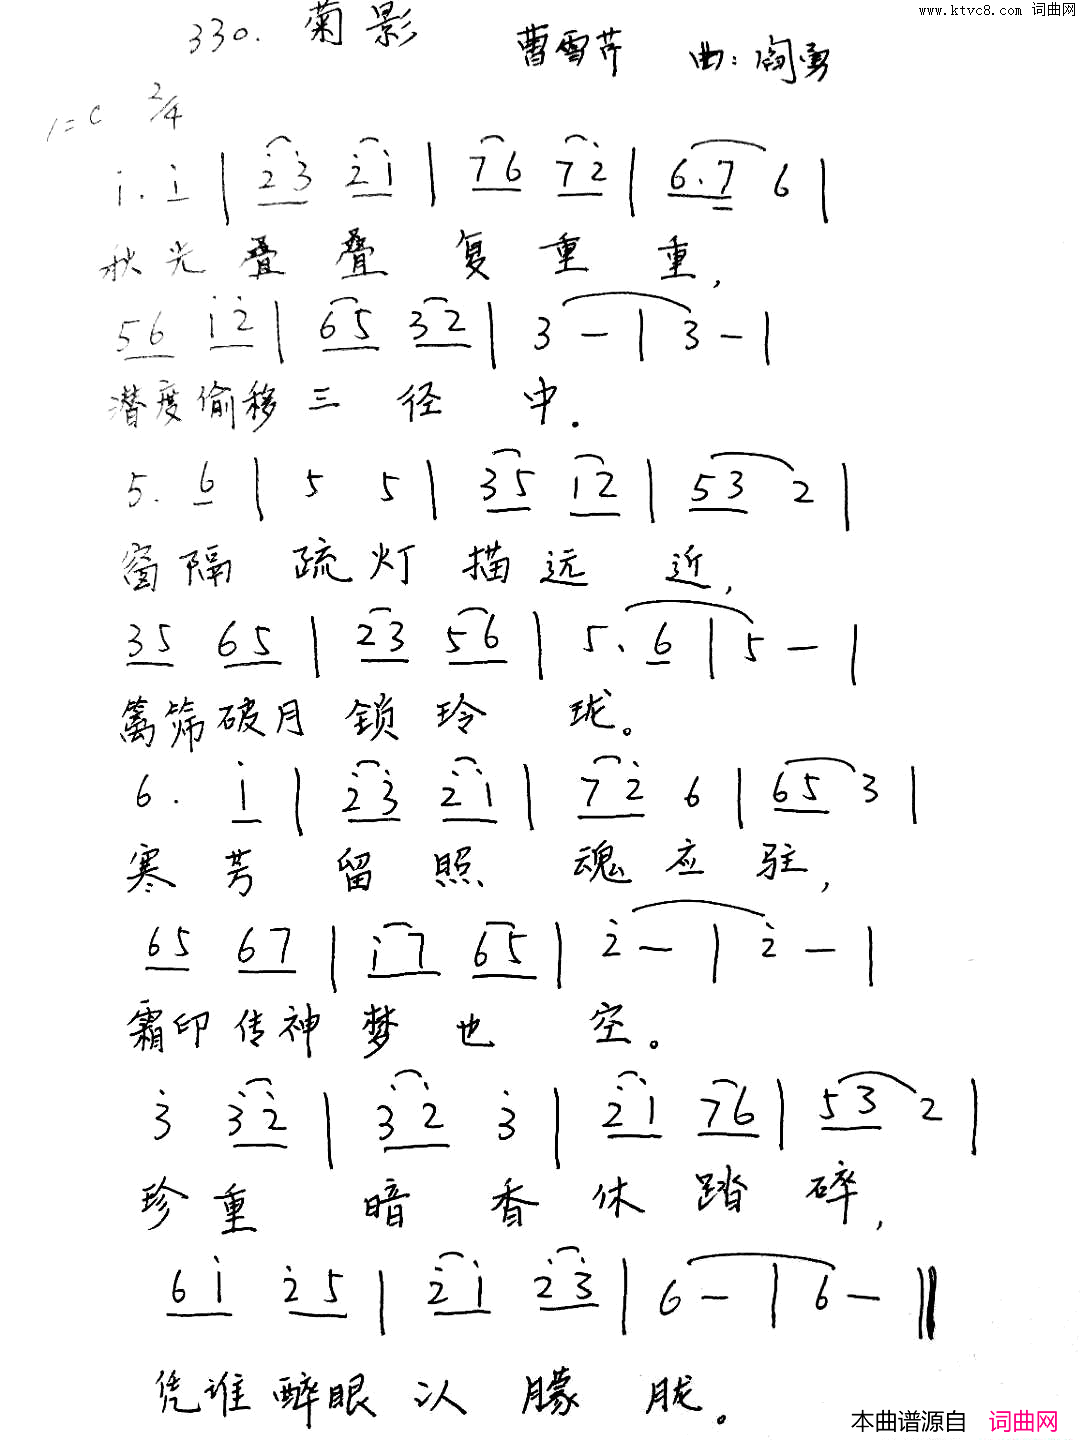 www.ktvc8.com 词曲网
330. 菊影
曹雪芹 曲:阎勇
1=C 2/4
i. i | 2̇3̇ 2̇i | 76 72̇ | 6.7 6 |
秋光叠叠复重重,
56 i2̇ | 65 32 | 3 — | 3 — |
潜度偷移三径中.
5. 6 | 5 5 | 35 12 | 53 2 |
窗隔疏灯描远近,
35 65 | 23 56 | 5. 6 | 5 — |
篱筛破月锁玲珑。
6. i | 2̇3̇ 2̇i | 72̇ 6 | 65 3 |
寒芳留照魂应驻,
65 67 | i7 65 | 2̇ — | 2̇ — |
霜印传神梦也空。
3̇ 3̇2̇ | 3̇2̇ 3̇ | 2̇i 76 | 53 2 |
珍重暗香休踏碎,
6i 2̇5 | 2̇i 2̇3̇ | 6 — | 6 — ‖
凭谁醉眼认朦胧。
本曲谱源自 词曲网